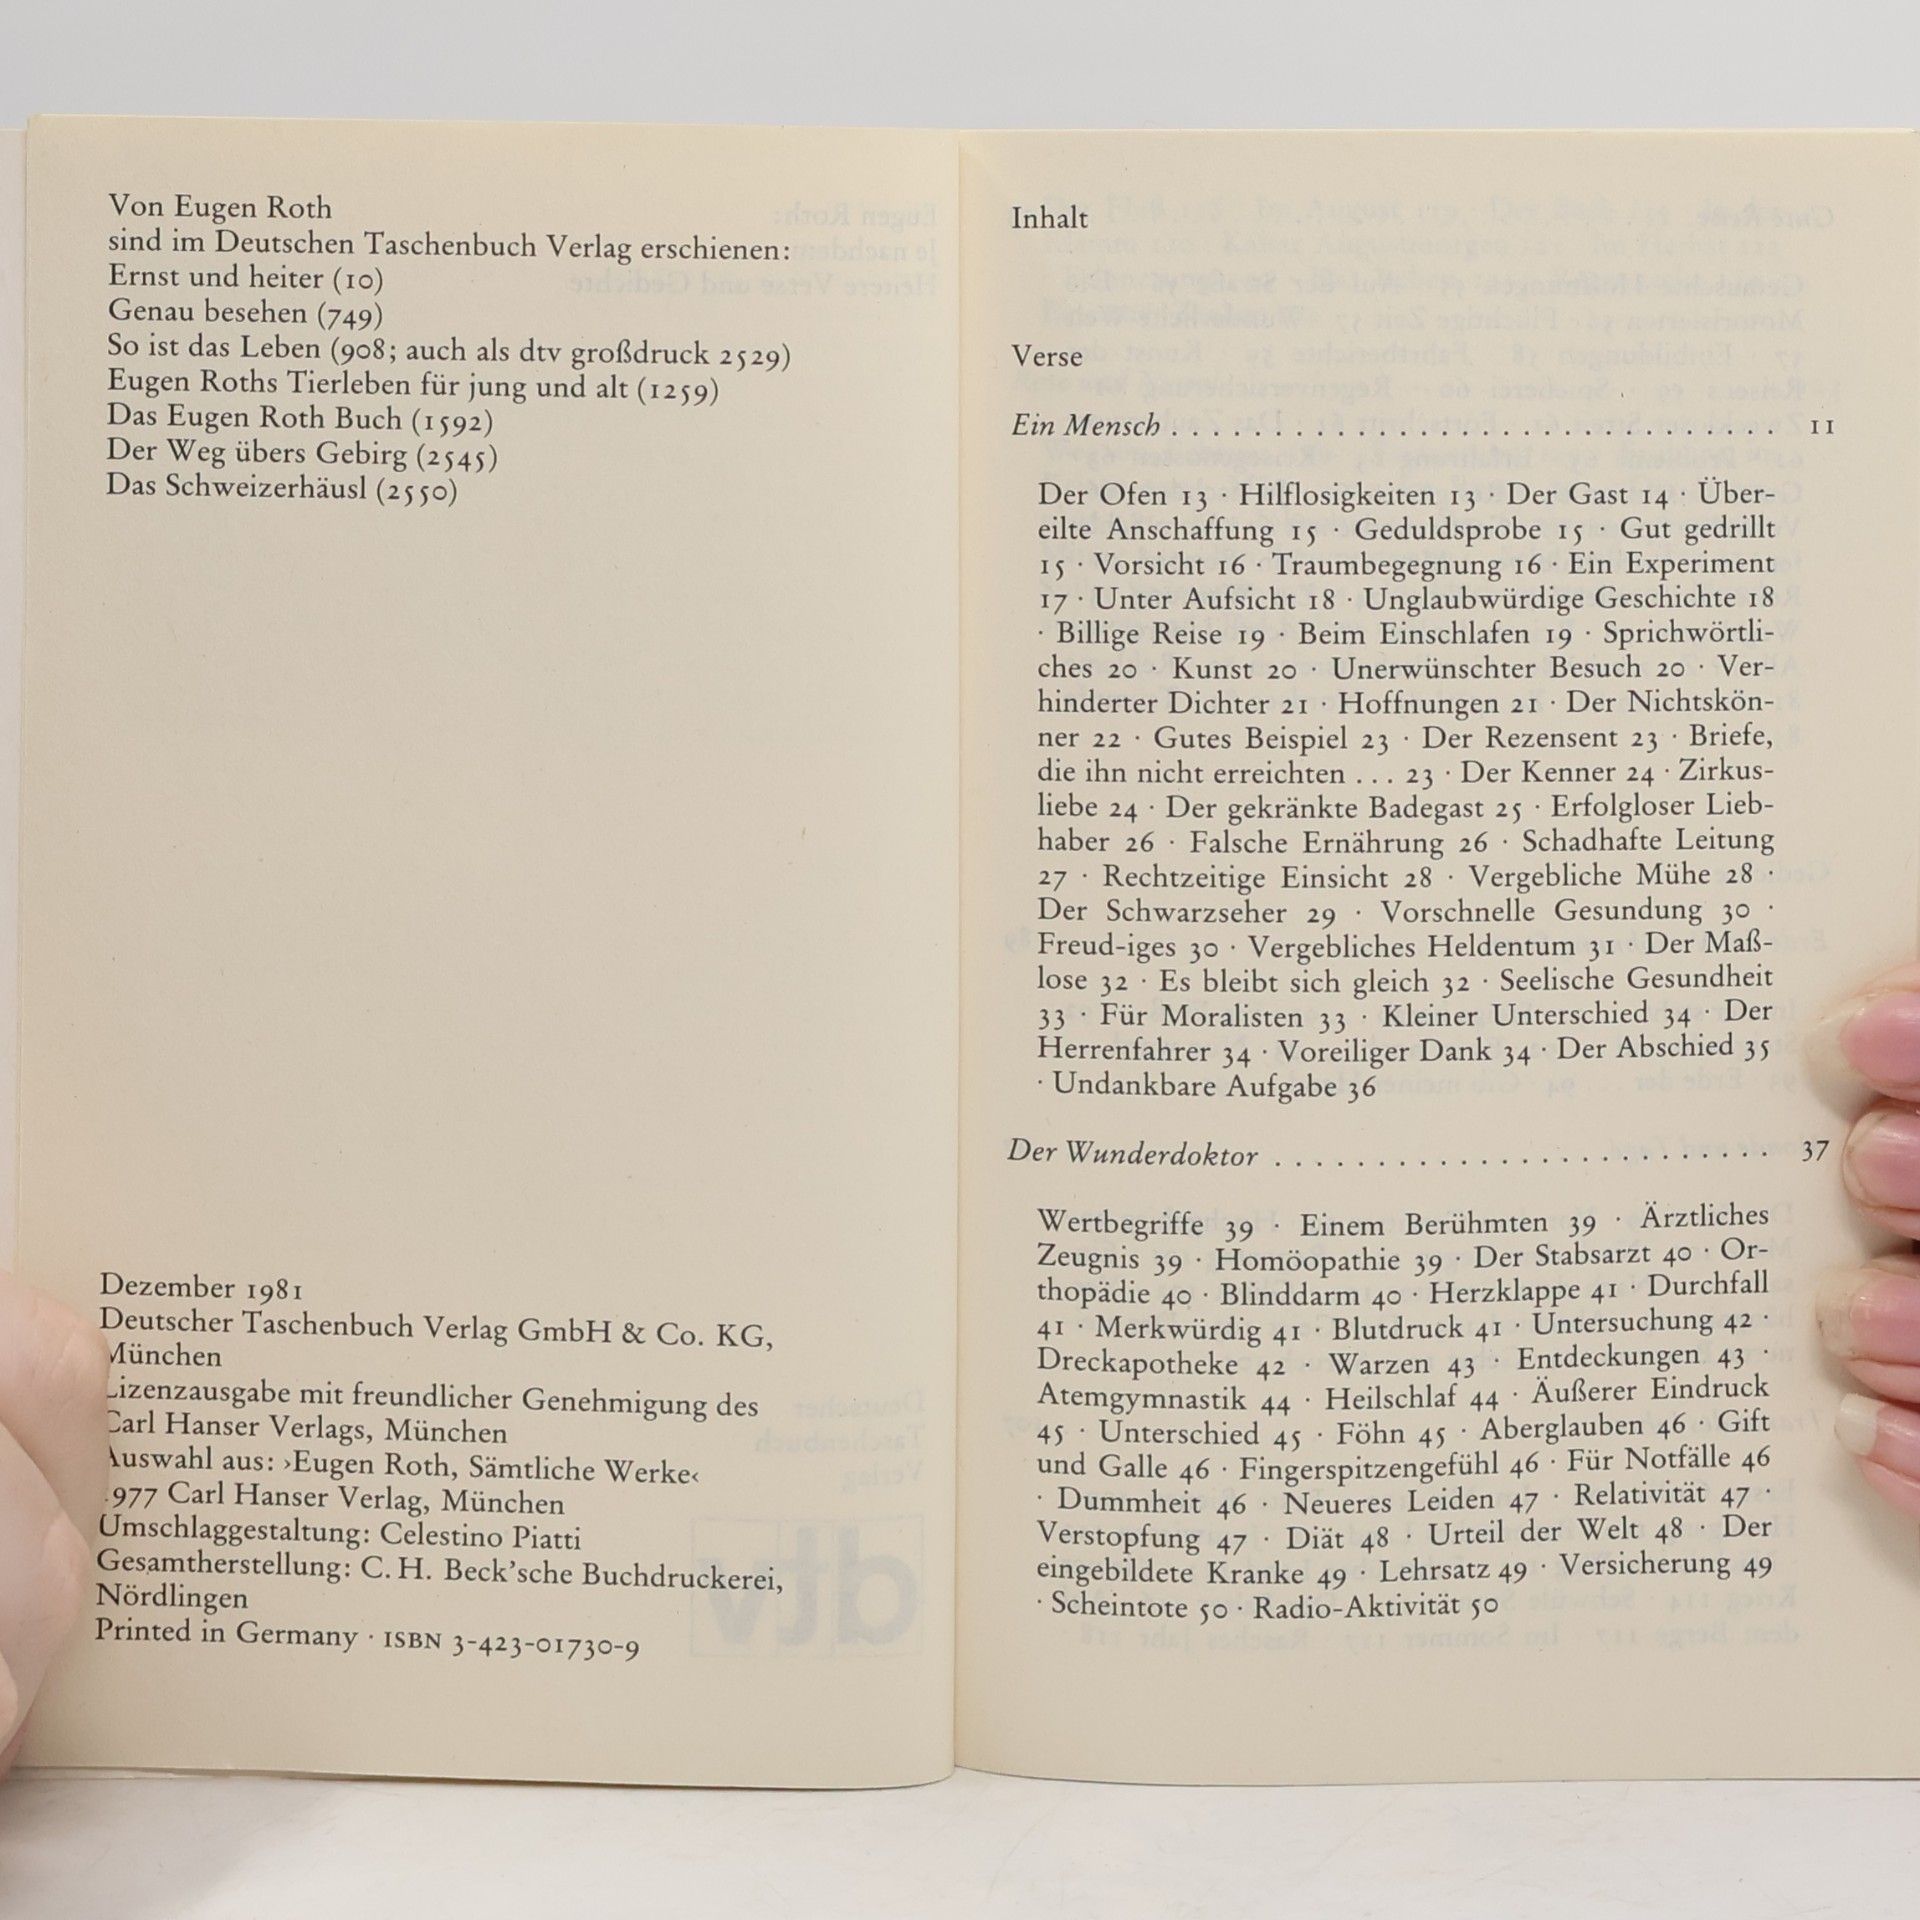 Von Eugen Roth
sind im Deutschen Taschenbuch Verlag erschienen:
Ernst und heiter (10)
Genau besehen (749)
So ist das Leben (908; auch als dtv großdruck 2529)
Eugen Roths Tierleben für jung und alt (1259)
Das Eugen Roth Buch (1592)
Der Weg übers Gebirg (2545)
Das Schweizerhäusl (2550)
Dezember 1981
Deutscher Taschenbuch Verlag GmbH & Co. KG,
München
Lizenzausgabe mit freundlicher Genehmigung des
Carl Hanser Verlags, München
Auswahl aus: ›Eugen Roth, Sämtliche Werke‹
1977 Carl Hanser Verlag, München
Umschlaggestaltung: Celestino Piatti
Gesamtherstellung: C. H. Beck’sche Buchdruckerei,
Nördlingen
Printed in Germany · ISBN 3-423-01730-9
Inhalt
Verse
Ein Mensch . . . . . . . . . . . . . . . . . . . . . . . . . . . . . . 11
Der Ofen 13 · Hilflosigkeiten 13 · Der Gast 14 · Über-
eilte Anschaffung 15 · Geduldsprobe 15 · Gut gedrillt
15 · Vorsicht 16 · Traumbegegnung 16 · Ein Experiment
17 · Unter Aufsicht 18 · Unglaubwürdige Geschichte 18
· Billige Reise 19 · Beim Einschlafen 19 · Sprichwörtli-
ches 20 · Kunst 20 · Unerwünschter Besuch 20 · Ver-
hinderter Dichter 21 · Hoffnungen 21 · Der Nichtskön-
ner 22 · Gutes Beispiel 23 · Der Rezensent 23 · Briefe,
die ihn nicht erreichten . . . 23 · Der Kenner 24 · Zirkus-
liebe 24 · Der gekränkte Badegast 25 · Erfolgloser Lieb-
haber 26 · Falsche Ernährung 26 · Schadhafte Leitung
27 · Rechtzeitige Einsicht 28 · Vergebliche Mühe 28 ·
Der Schwarzseher 29 · Vorschnelle Gesundung 30 ·
Freud-iges 30 · Vergebliches Heldentum 31 · Der Maß-
lose 32 · Es bleibt sich gleich 32 · Seelische Gesundheit
33 · Für Moralisten 33 · Kleiner Unterschied 34 · Der
Herrenfahrer 34 · Voreiliger Dank 34 · Der Abschied 35
· Undankbare Aufgabe 36
Der Wunderdoktor . . . . . . . . . . . . . . . . . . . . . . . . . 37
Wertbegriffe 39 · Einem Berühmten 39 · Ärztliches
Zeugnis 39 · Homöopathie 39 · Der Stabsarzt 40 · Or-
thopädie 40 · Blinddarm 40 · Herzklappe 41 · Durchfall
41 · Merkwürdig 41 · Blutdruck 41 · Untersuchung 42 ·
Dreckapotheke 42 · Warzen 43 · Entdeckungen 43 ·
Atemgymnastik 44 · Heilschlaf 44 · Äußerer Eindruck
45 · Unterschied 45 · Föhn 45 · Aberglauben 46 · Gift
und Galle 46 · Fingerspitzengefühl 46 · Für Notfälle 46
· Dummheit 46 · Neueres Leiden 47 · Relativität 47 ·
Verstopfung 47 · Diät 48 · Urteil der Welt 48 · Der
eingebildete Kranke 49 · Lehrsatz 49 · Versicherung 49
· Scheintote 50 · Radio-Aktivität 50